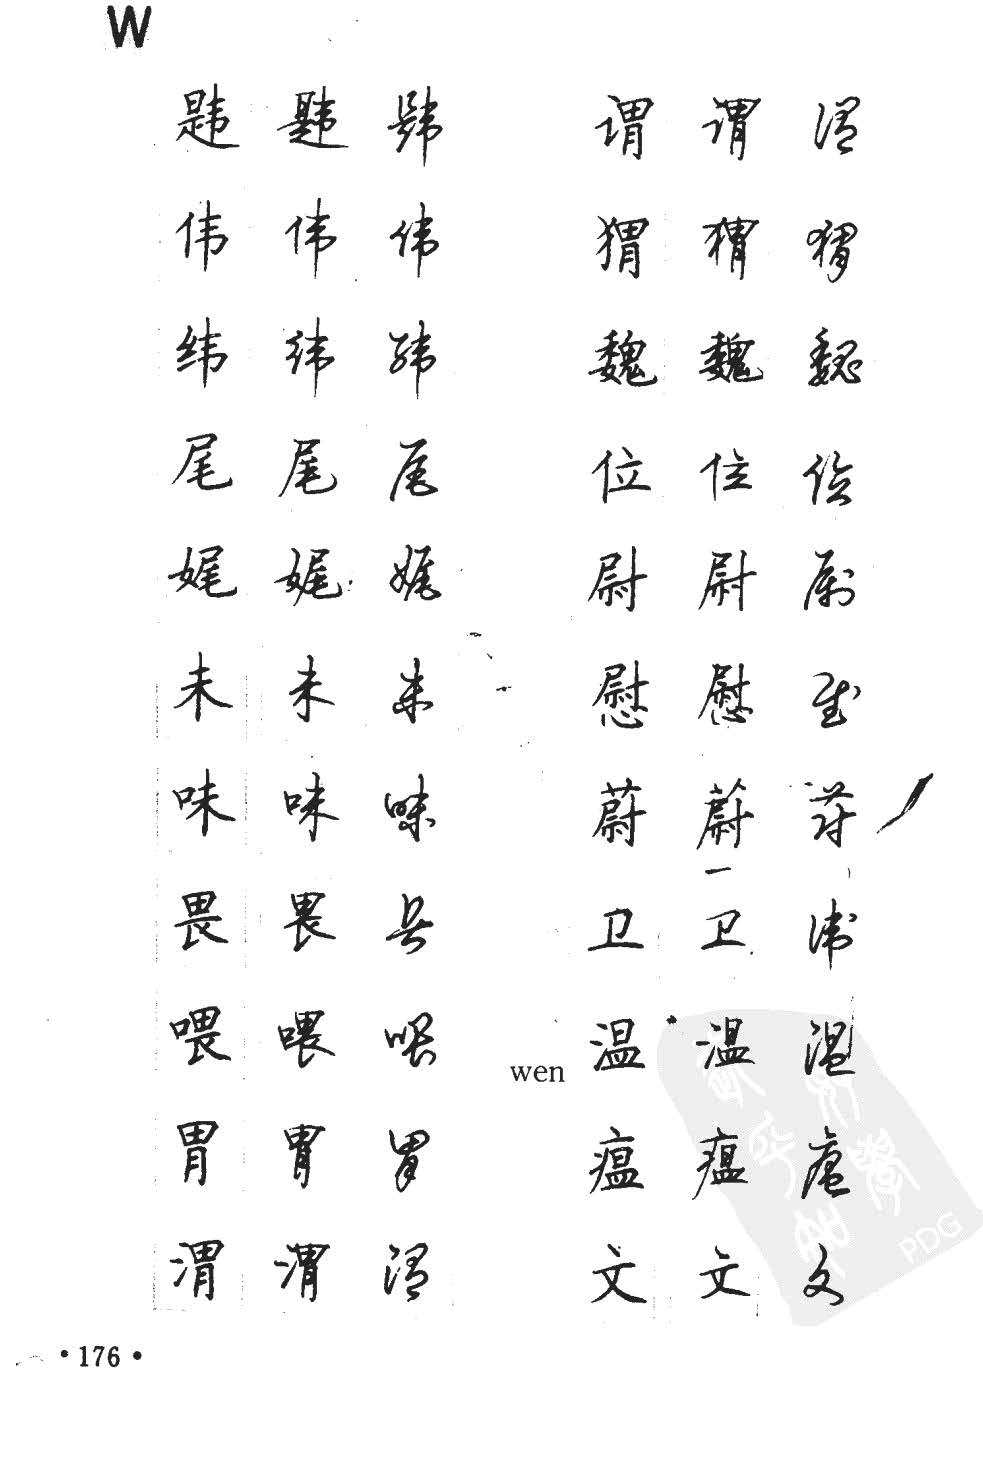 W
韪 韪 韪
伟 伟 伟
纬 纬 纬
尾 尾 尾
娓 娓 娓
未 未 未
味 味 味
畏 畏 畏
喂 喂 喂
胃 胃 胃
渭 渭 渭
谓 谓 谓
猬 猬 猬
魏 魏 魏
位 位 位
尉 尉 尉
慰 慰 慰
蔚 蔚 蔚
卫 卫 卫
wen 温 温 温
瘟 瘟 瘟
文 文 文
·176·
PDG